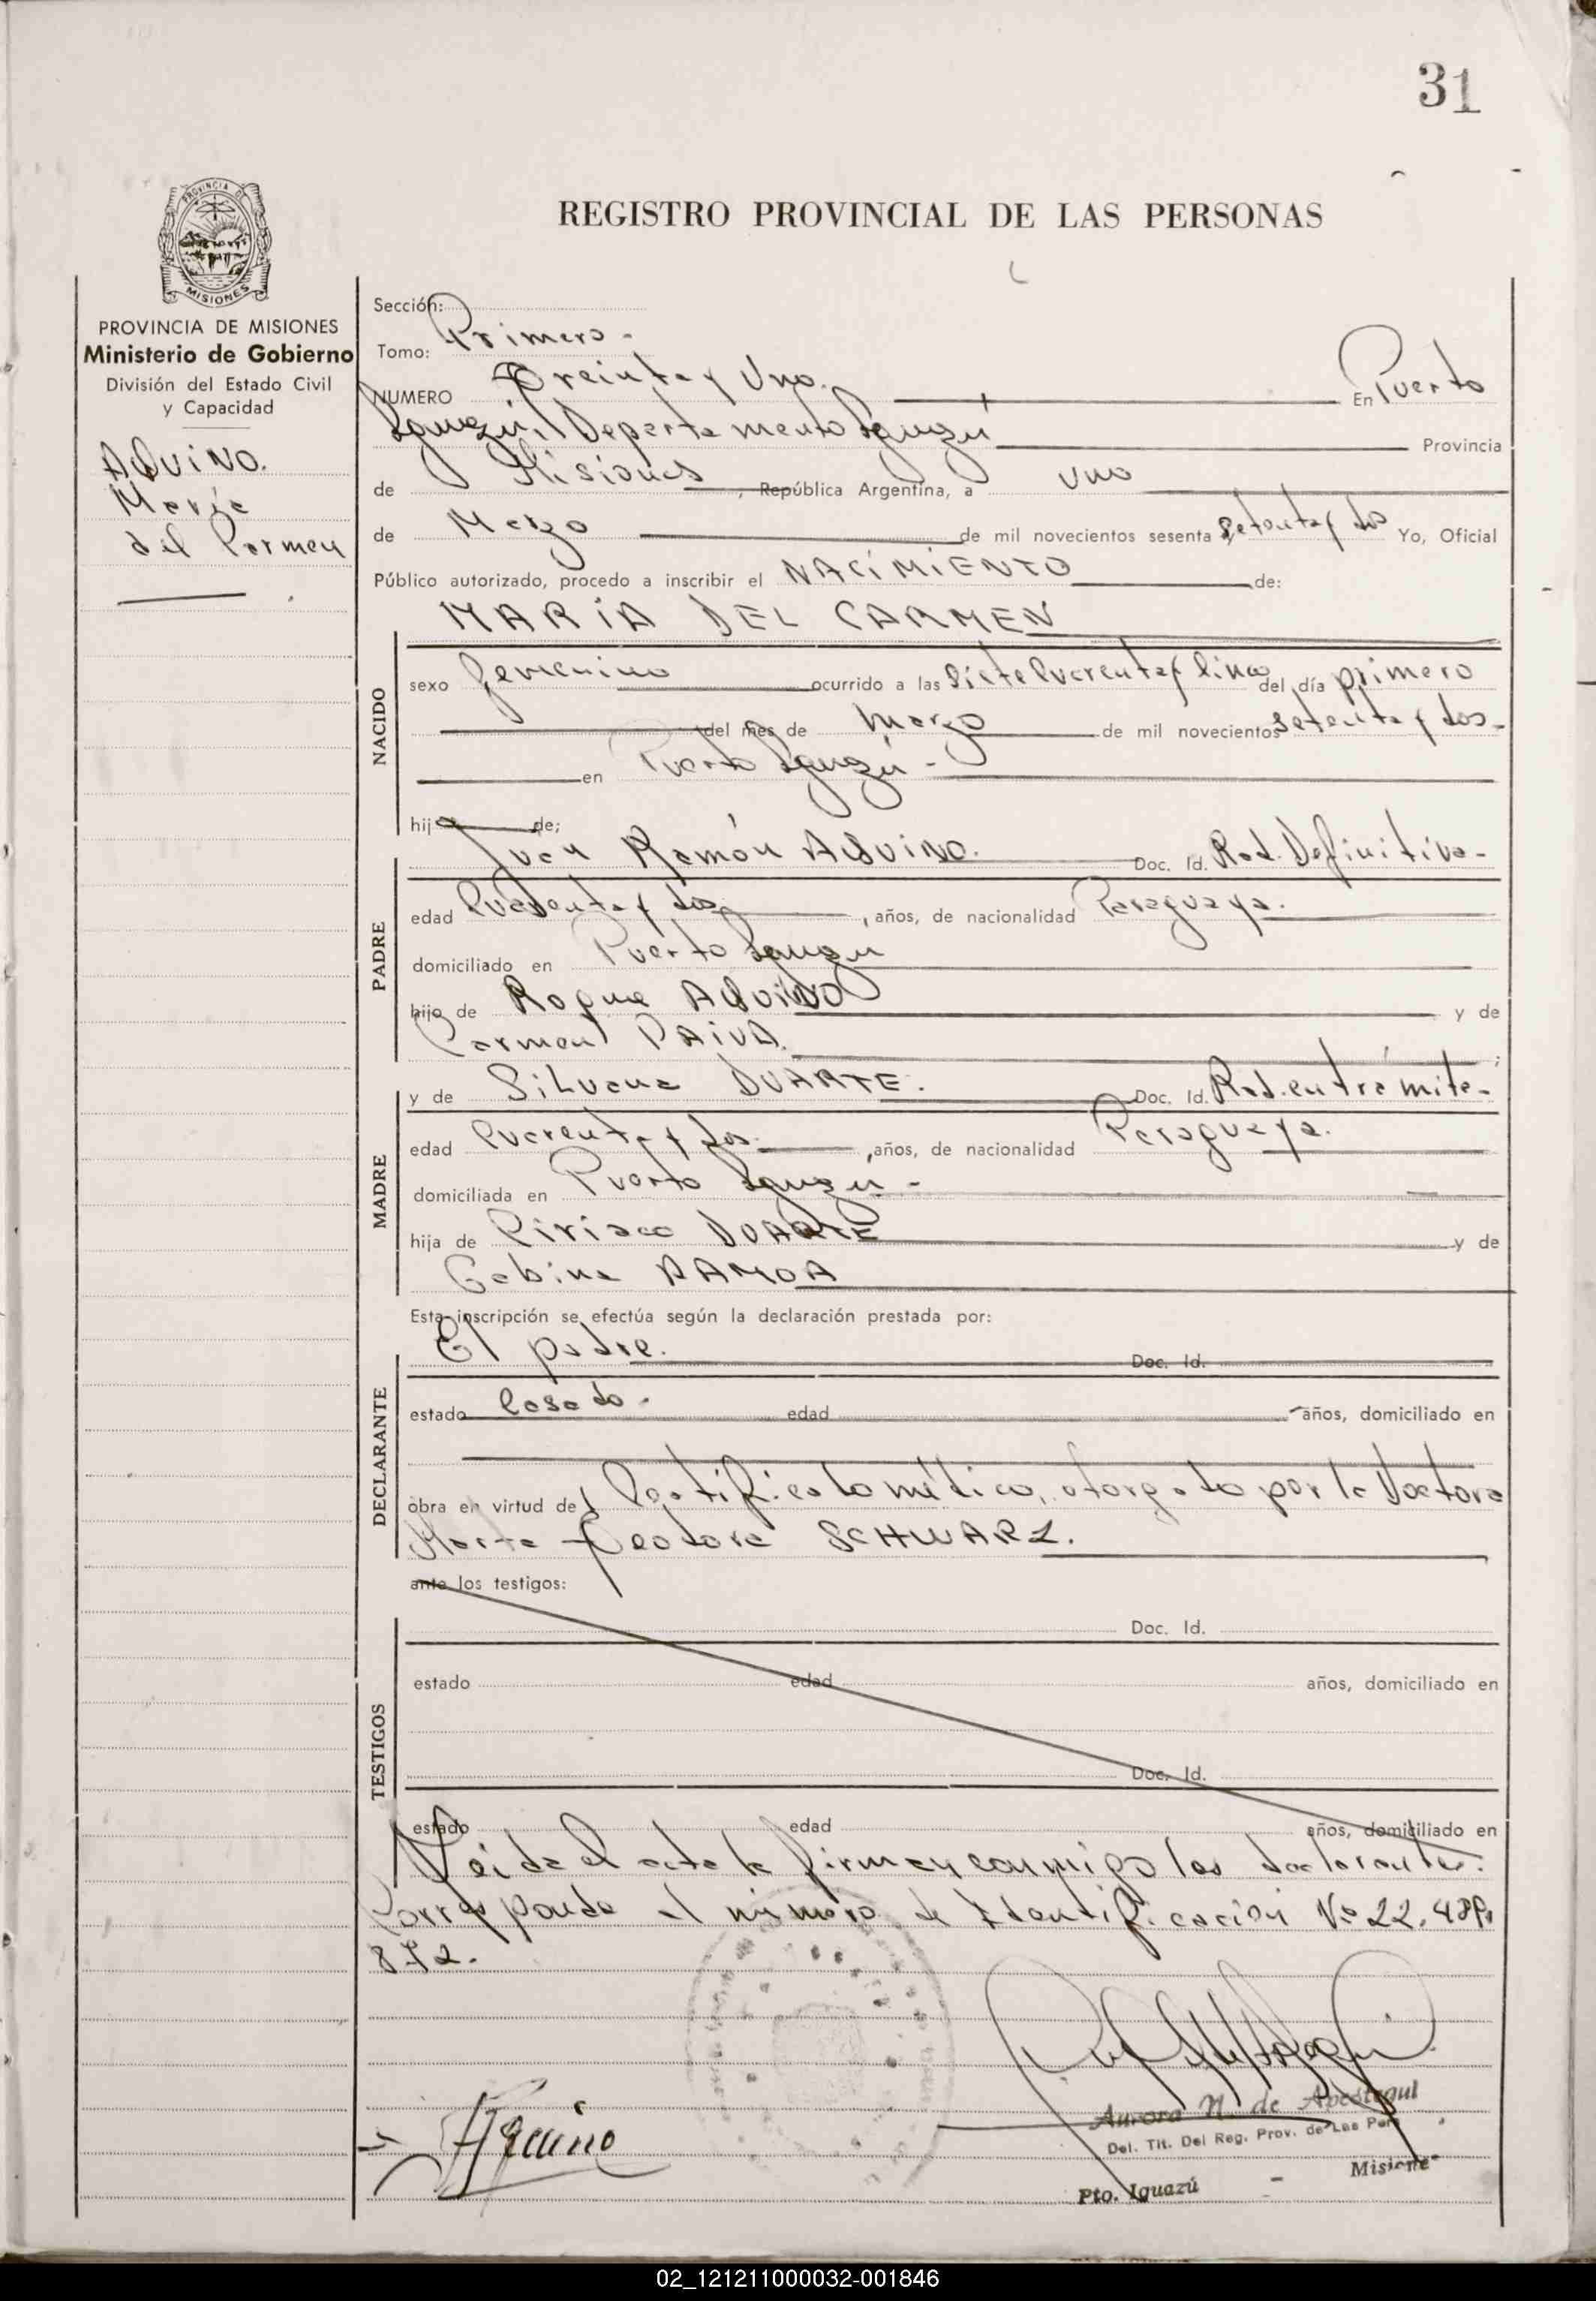 31
REGISTRO PROVINCIAL DE LAS PERSONAS
PROVINCIA DE
MISIONES
PROVINCIA DE MISIONES
Ministerio de Gobierno
División del Estado Civil
y Capacidad
AQUINO.
María
del Carmen
Sección:
Tomo: Primero -
NUMERO Treinta y Uno. En Puerto
Iguazú, Departamento Iguazú Provincia
de Misiones, República Argentina, a uno
de Marzo de mil novecientos sesenta y setenta y dos Yo, Oficial
Público autorizado, procedo a inscribir el NACIMIENTO de:
MARIA DEL CARMEN
NACIDO
sexo femenino ocurrido a las Siete Cuarenta y Cinco del día primero
del mes de marzo de mil novecientos setenta y dos -
en Puerto Iguazú -
hija de;
PADRE
Juan Ramón AQUINO. Doc. Id. Rad. Definitiva -
edad Cuarenta y dos, años, de nacionalidad Paraguaya.
domiciliado en Puerto Iguazu
hijo de Roque AQUINO y de
Carmen PAIVA. ;
MADRE
y de Silvana DUARTE. Doc. Id. Rad. en trámite -
edad Cuarenta y dos. , años, de nacionalidad Paraguaya.
domiciliada en Puerto Iguazú -
hija de Ciriaco DUARTE y de
Gabina RAMOA
Esta inscripción se efectúa según la declaración prestada por:
DECLARANTE
El padre. Doc. Id.
estado Casado - edad años, domiciliado en
obra en virtud de Certificado médico, otorgado por la Doctora
Marta Teodora SCHWARZ.
ante los testigos:
TESTIGOS
Doc. Id.
estado edad años, domiciliado en
Doc. Id.
estado edad años, domiciliado en
Leida el acta la firman conmigo los declarantes.
Corresponde al número de Identificación Nº 22.489.
872.
Aquino
Aurora N. de Apestegui
Del. Tit. Del Reg. Prov. de Las Pers
Pto. Iguazú - Misiones
02_121211000032-001846